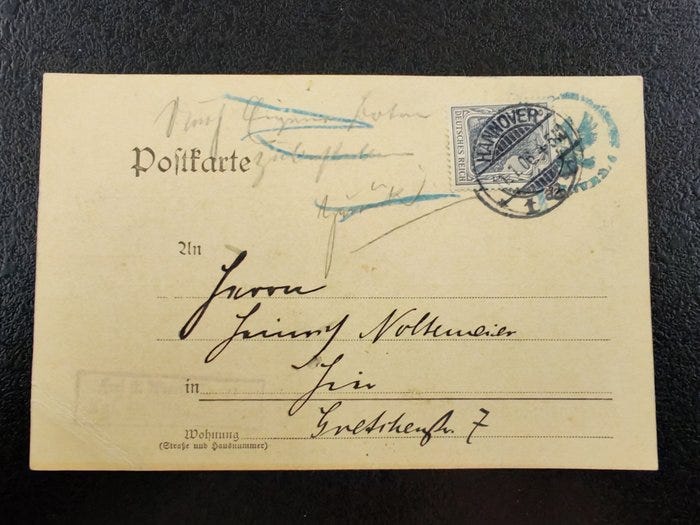 durch Eigenen Boten
zu bestellen
Postkarte
DEUTSCHES REICH
HANNOVER
1.06.
1
An
Herrn
Heinrich Noltemeier
in Hier
Gretchenstr. 7
Wohnung
(Straße und Hausnummer)